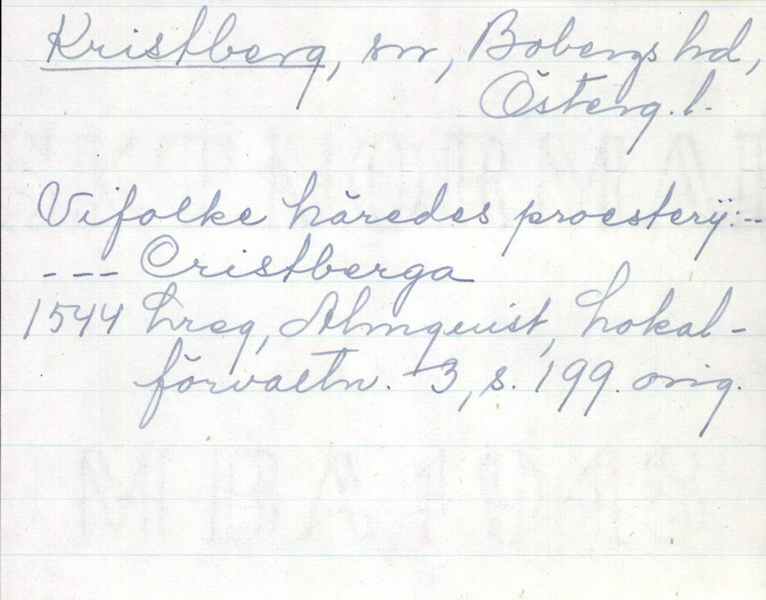 Kristberg, sn, Bobergs hd,
Österg. l.
Vifolke häredes proesterÿ: --
--- Cristberga
1544 hreg, Almquist, Lokal-
förvaltn. 3, s. 199. orig.